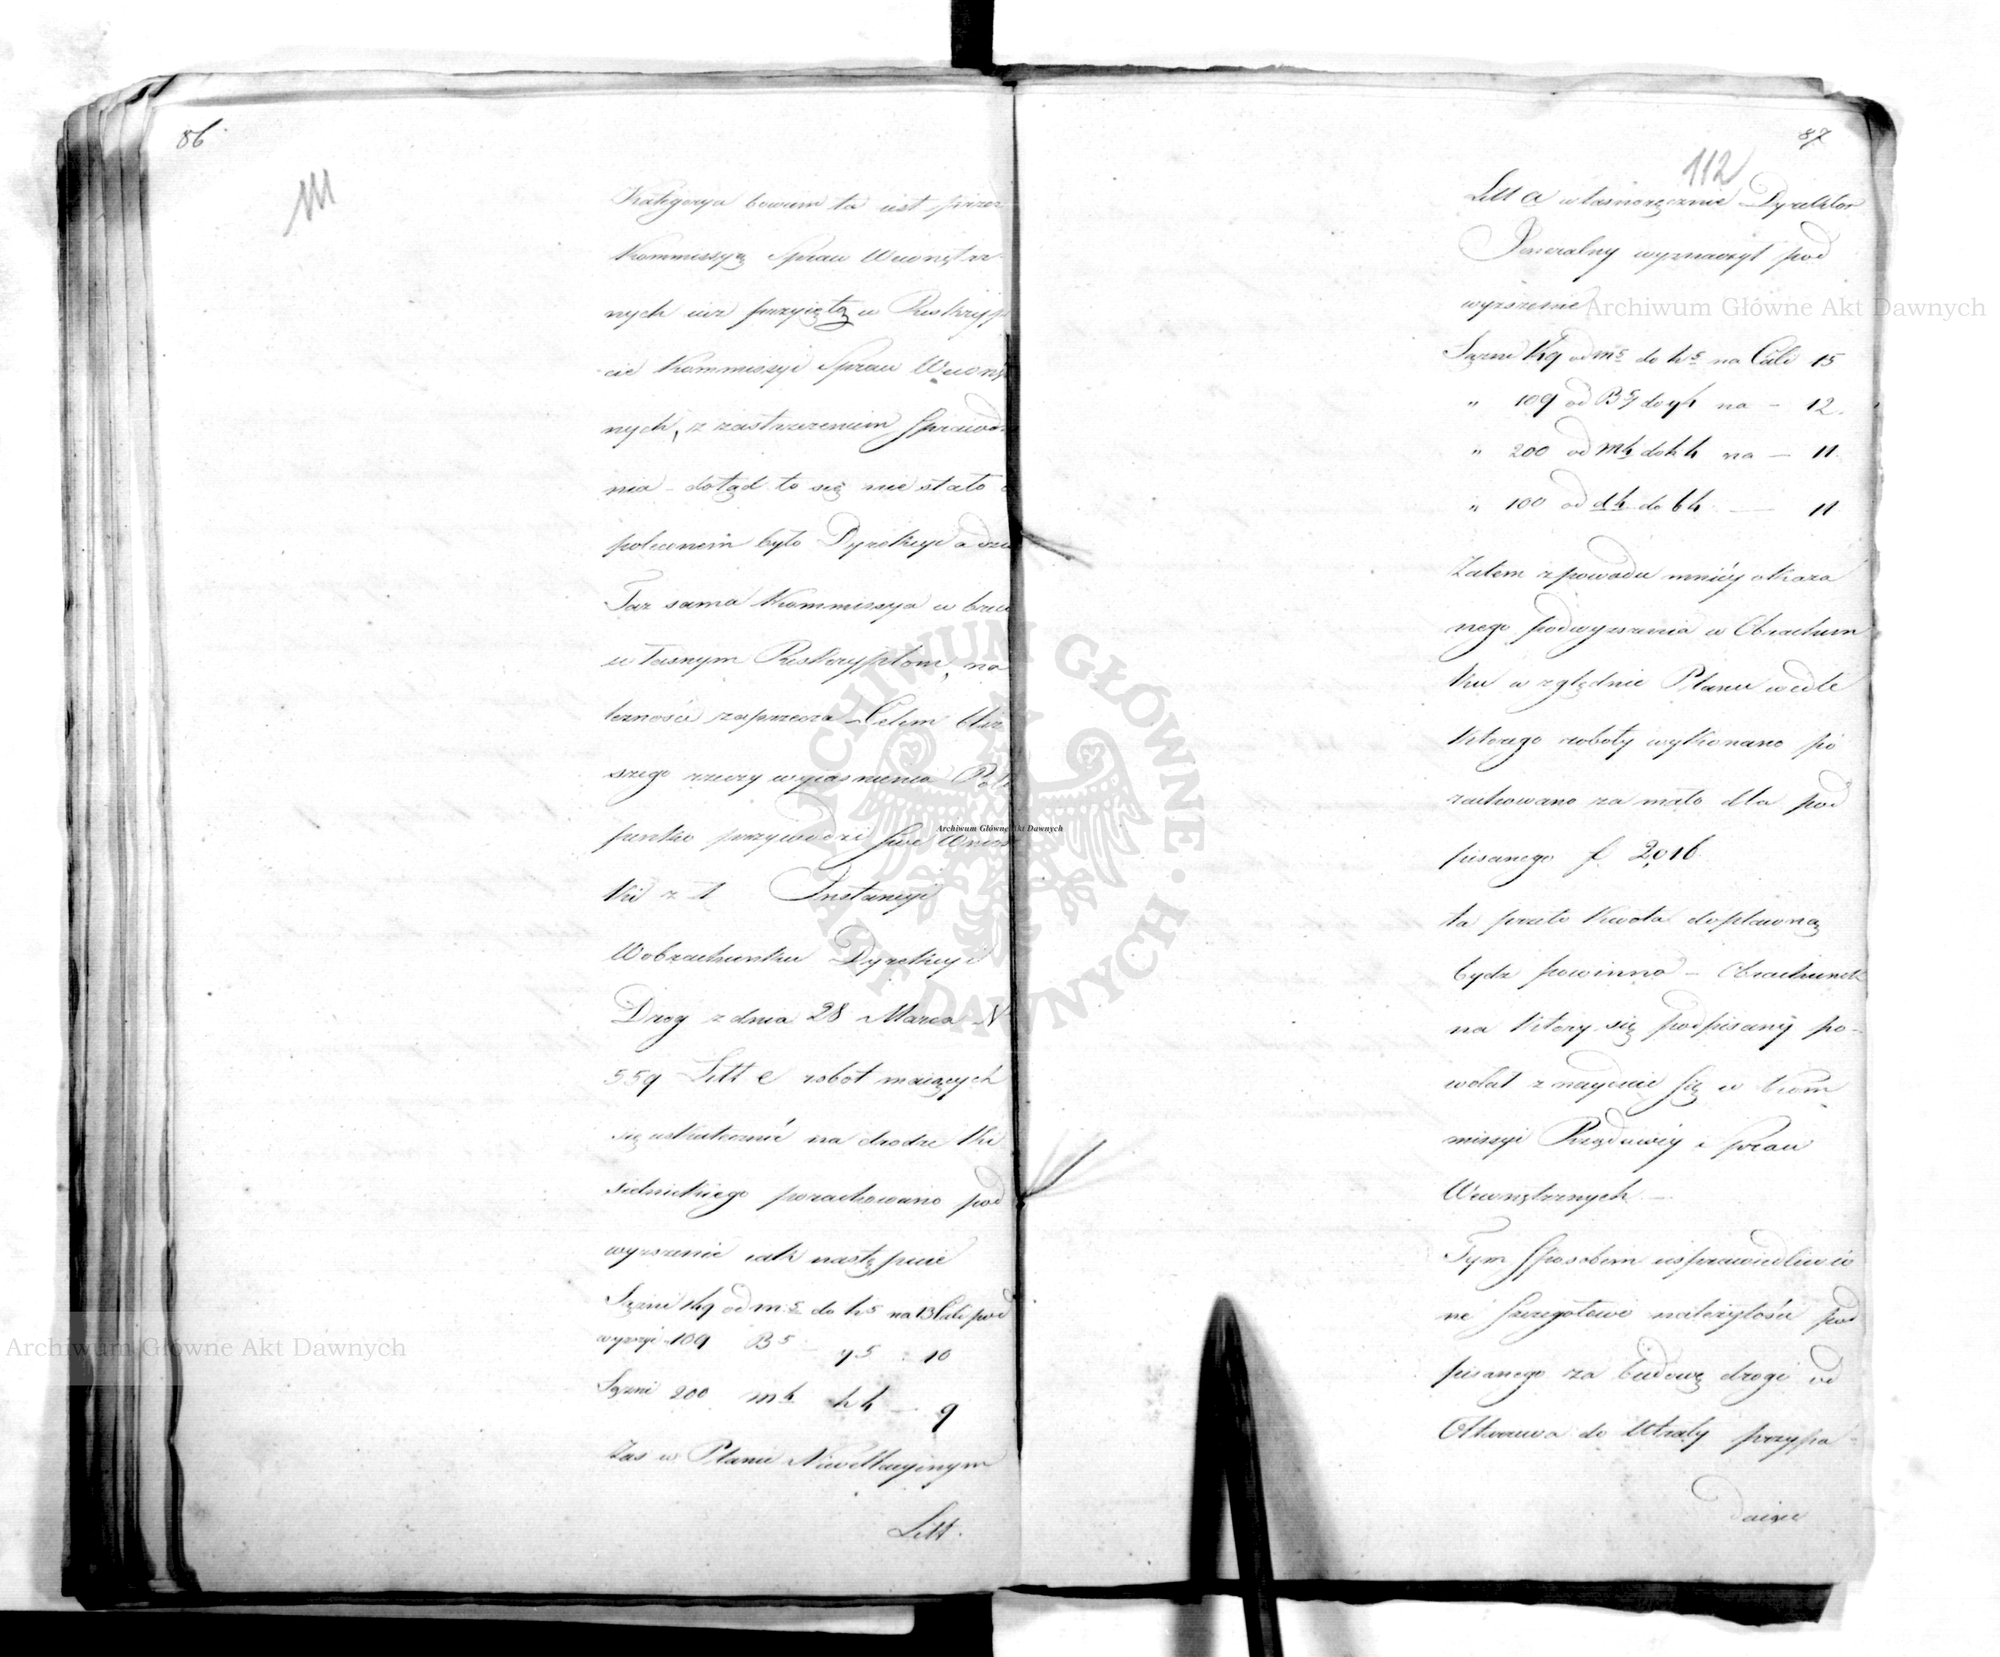 86
111
Kategorya bowiem ta iest przez
Kommissyą Spraw Wewnętrz-
nych iuz przyiętą w Reskryp
cie Kommissyi Spraw Wewnęt
nych, z zastrzezeniem Sprawdze
nia – dotąd to się nie stało
poleconem było Dyrekcyi a
Taz sama Kommissya w brew
własnym Reskryptom, na
lezności zaprzecza Celem bliz
szego rzeczy wyiasnienia
punkcie przywodzi swe Wnios
ki z 1 Instancyi
W obrachunku Dyrekcyi
Drog z dnia 28 Marca N
559 Litt C robot maiących
się uskutecznić na drodze Ki
sielnickiego porachowano pod
wyzszenie iak następuie
Sązni 149 od m5 do h5 na 13 Cali pod
wyzszyć 109 B5 – y5 : 10
Sązni 200 m4 h4 – 9
Zas w Planie Niwellacyinym
Litt.
87
112
Litt a własnoręcznie Dyrektor
Jeneralny wyznaczył pod
wyzszenie
Sązni 149 od m5 do h5 na Cali 15
" 109 od B5 do y4 na – 12.
" 200 od m4 do h4 na – 11.
" 100 od d4 do b4 – 11
Zatem z powodu mniéy okaza
nego podwyzszenia w Obrachun
ku względnie Planu wedle
ktorego roboty wykonano po
rachowano za mało dla pod
pisanego f 2,016.
ta przeto Kwota dopłaconą
bydz powinna – Obrachunek
na ktory się podpisany po-
wołał znayduie się w Kom
missyi Rządowéy Spraw
Wewnętrznych. –
Tym Sposobem usprawiedliwio
ne szczegołowe należytości pod
pisanego za budowę drogi od
Ołtarzewa do Utraty przypa-
daiące
Archiwum Główne Akt Dawnych
Archiwum Główne Akt Dawnych
Archiwum Główne Akt Dawnych
ARCHIWUM GŁÓWNE · AKT DAWNYCH ·